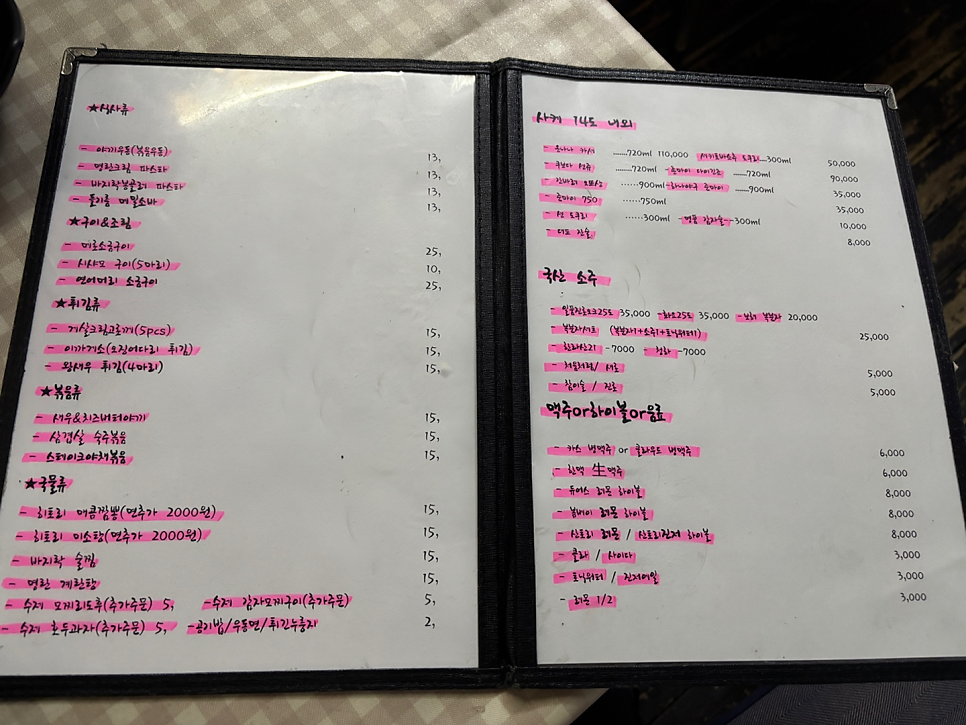 ★식사류
- 야끼우동(볶음우동) 13,
- 명란크림 파스타 13,
- 바지락봉골레 파스타 13,
- 들기름 메밀소바 13,
★구이&조림
- 메로소금구이 25,
- 시샤모 구이(5마리) 10,
- 연어머리 소금구이 25,
★튀김류
- 게살크림고로케(5pcs) 15,
- 이까게소(오징어다리 튀김) 15,
- 왕새우 튀김(4마리) 15,
★볶음류
- 새우&치즈버터야끼 15,
- 삼겹살 숙주볶음 15,
- 스테이크야채볶음 15,
★국물류
- 히토리 매콤짬뽕(면추가 2000원) 15,
- 히토리 미소탕(면추가 2000원) 15,
- 바지락 술찜 15,
- 명란 계란탕 15,
- 수제 모찌리도후(추가주문) 5, -수제 감자모찌구이(추가주문) 5,
- 수제 호두과자(추가주문) 5, -공기밥/우동면/튀긴누룽지 2,
사케 14도 내외
- 720ml 110,000 300ml 50,000
- 720ml 720ml 90,000
- ......900ml ......900ml 35,000
- 준마이 750 ......750ml 35,000
- 도쿠리 ......300ml - 300ml 10,000
- 8,000
국산 소주
- 일품진로오크25도 35,000 -화요25도 35,000 - 복분자 20,000
- (복분자+소주1+토닉워터1) 25,000
- 한라산21 -7000 - 청하 -7000
- 처음처럼/ 새로 5,000
- 참이슬 / 진로 5,000
맥주or하이볼or음료
- 카스 병맥주 or 클라우드 병맥주 6,000
- 한맥 生맥주 6,000
- 듀어스 레몬 하이볼 8,000
- 봄베이 레몬 하이볼 8,000
- 산토리 레몬 / 산토리진저 하이볼 8,000
- 콜라 / 사이다 3,000
- 토닉워터 / 진저에일 3,000
- 레몬 1/2 3,000